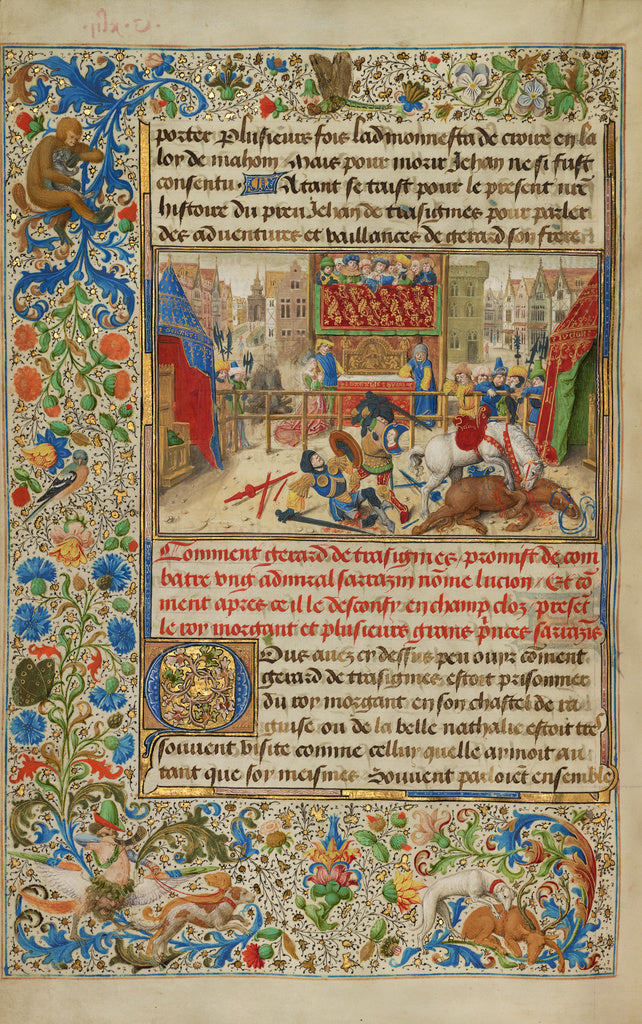 porter Plusieurs fois ladmonnesta de croire en la
loy de mahom Mais pour morir Jehan ne si fust
consentu Atant se taist pour le present nre
histoire du preu Jehan de trasignies pour parler
des adventures et vaillances de gerard son frere
Comment gerard de trasignies / promist de com
batre vng admiral sarrazin nome lucion / Et co
ment apres ce il le desconfy en champ cloz present
le roy morgant et plusieurs grans prnces sarrazis
Vous avez cy dessus peu ouyr coment
gerard de trasignies estoit prisonnier
du roy morgant en son chastel de ra
guise ou de la belle nathalie estoit tres
souvent visite comme celluy quelle aymoit au
tant que soy meismes Souvent parloiet ensemble